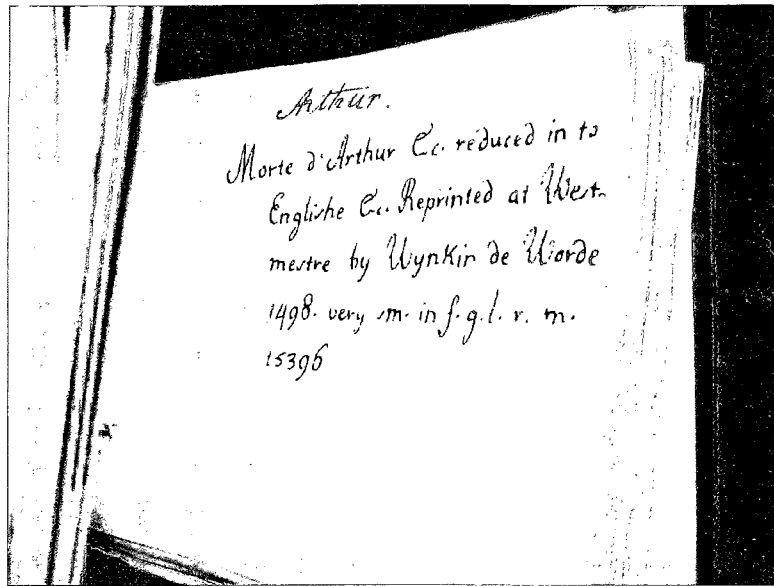 Arthur.
Morte d'Arthur &c. reduced in to
Englishe &c. Reprinted at West-
mestre by Wynkin de Worde
1498. very sm. in f. g. l. r. m.
15396